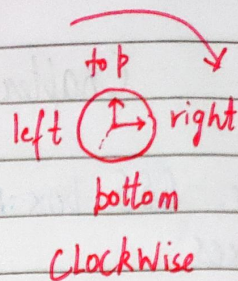 top
left right
bottom
CLOCKWise